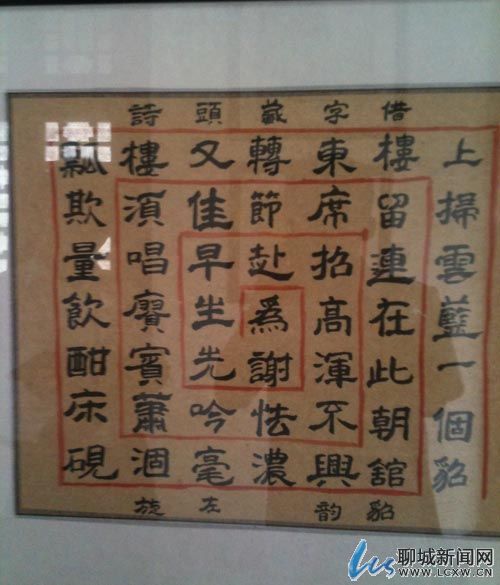 借字藏頭詩
上掃雲藍一個貂
樓留連在此朝舘
東席招高渾不興
轉節赴為謝怯濃
又佳早生先吟毫
樓須唱賡賓蕭涸
瓢欺量飲酣床硯
貂韵左旋
聊城新闻网
WWW.LCXW.CN